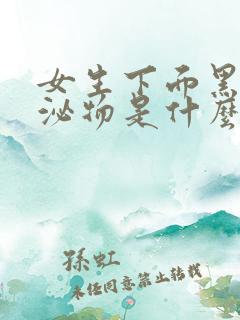 女生下面黑
泌物是什麼
孫虹
未经同意禁止转载